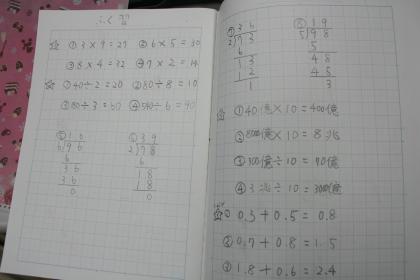 ふく習
☆ ① 3×9=27 ② 6×5=30
③ 8×4=32 ④ 7×2=14
☆ ① 40÷2=20 ② 80÷8=10
③ 180÷3=60 ④ 540÷6=90
⑤ 16
6)96
6
36
36
0
⑥ 39
2)78
6
18
18
0
⑦ 36
2)72
6
13
12
1
⑧ 19
5)98
5
48
45
3
☆ ① 40億×10=400億
② 8000億×10=8兆
③ ÷10=
④ 3兆÷10=3000億
☆ ① 0.3+0.5=0.8
② 0.7+0.8=1.5
③ 1.8+0.6=2.4